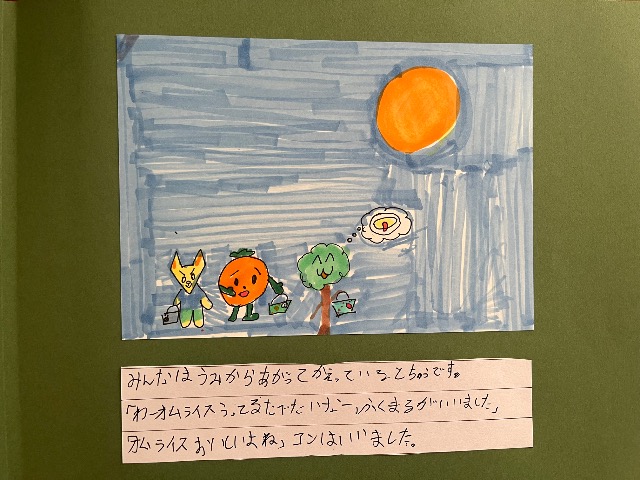 みんなはうみからあがってかえっているとちゅうです。
「わーオムライスうってるたべたいなー」ふくまるがいいました」
「オムライスおいしいよね」コンはいいました。